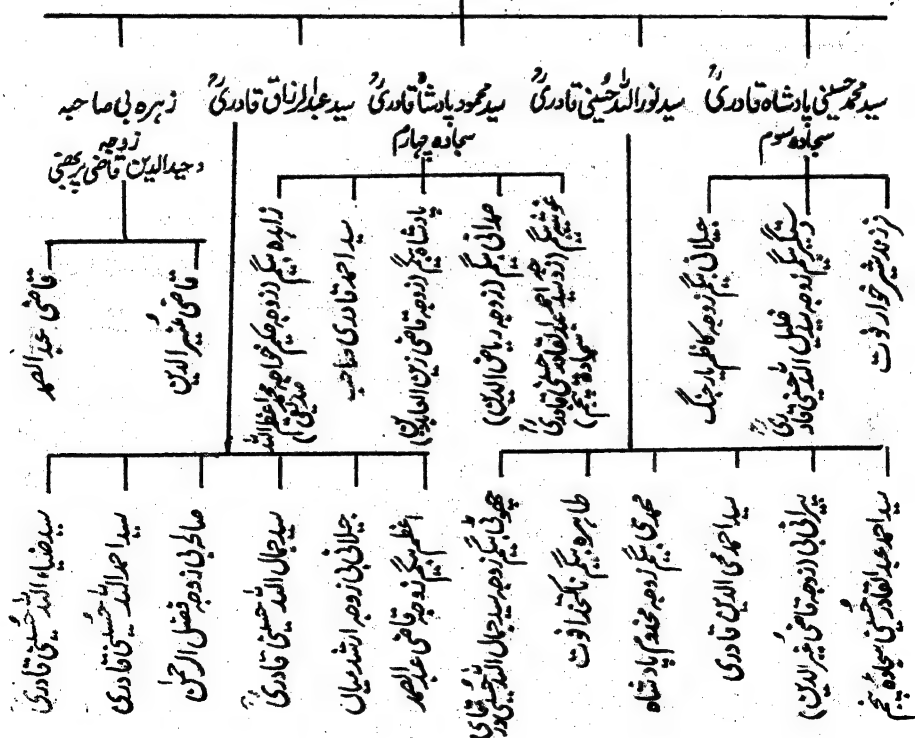 سید محمد حسینی پادشاہ قادریؒ
سجادہ سوم
سید نور اللہ حسینی قادریؒ
سید محمود پادشاہ قادریؒ
سجادہ چہارم
سید عبدالرزاق قادریؒ
زہرہ بی صاحبہ
زوجہ
وحیدالدین قاضی پرچھتی
فرزند شیر خوار فوت
دستگیر بیگم زوجہ سید خلیل اللہ حسینی قادریؒ
جیلانی بیگم زوجہ کاظم یار جنگ
غوثیہ بیگم (زوجہ سید احمد عبدالقادر حسینی قادریؒ سجادہ پنجم)
صمدانی بیگم (زوجہ ریاض الدین)
پادشاہ بیگم (زوجہ قاضی زین العابدین)
سید احمد قادری صاحب
زاہدہ بیگم (زوجہ حکیم خواجہ محمد اعظم اللہ صدیقی)
قاضی منیر الدین
قاضی عبدالصمد
سید احمد عبدالقادر حسینی سجادہ پنجم
پیرانی بی (زوجہ قاضی منیر الدین)
سید احمد محی الدین قادری
محمدی بیگم زوجہ مخدوم پادشاہ
طاہرہ بیگم ناکتخدا فوت
چھوٹی بیگم زوجہ سید جمال اللہ حسینی قادری
اعظم بیگم زوجہ قاضی عبدالصمد
جیلانی بی زوجہ ارشد میاں
سید جمال اللہ حسینی قادریؒ
صالحہ بی زوجہ فضل الرحمٰن
سید احمد اللہ حسینی قادری
سید ضیاء اللہ حسینی قادری